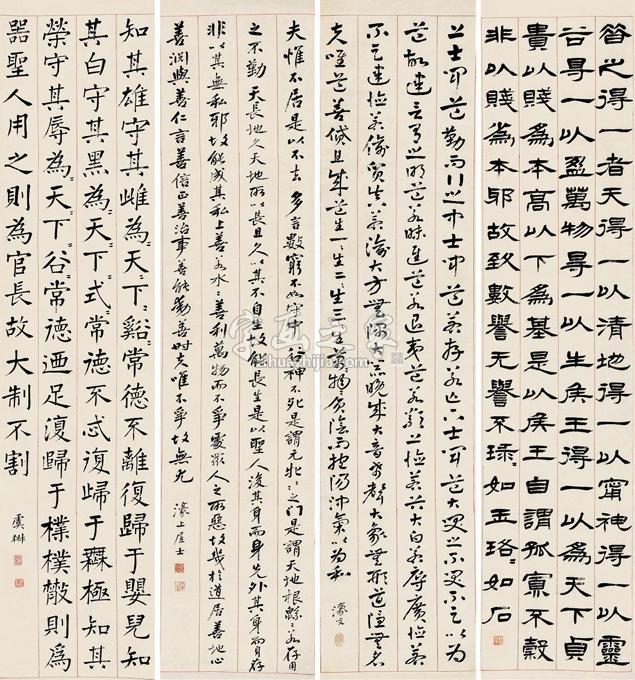 昔之得一者天得一以清地得一以寧神得一以靈
谷得一以盈萬物得一以生矦王得一以為天下貞
貴以賤為本高以下為基是以矦王自謂孤寡不穀
非以賤為本邪故致數譽无譽不琭〻如玉珞〻如石
上士聞道勤而行之中士聞道若存若亡下士聞道大笑之不笑不足以為
道故建言有之明道若昧進道若退夷道若纇上德若谷大白若辱廣德若
不足建德若偷質真若渝大方無隅大器晚成大音希聲大象無形道隱無名
夫唯道善貸且成道生一〻生二〻生三〻生萬物〻負陰而抱陽沖氣以為和
濠叟
夫惟不居是以不去多言數窮不如守中谷神不死是謂元牝〻〻之門是謂天地根緜〻若存用
之不勤天長地久天地所以長且久以其不自生故能長生是以聖人後其身而身先外其身而身存
非以其無私耶故能成其私上善若水〻善利萬物而不爭處眾人之所惡故幾於道居善地心
善淵與善仁言善信正善治事善能動善時夫唯不爭故無尤
濠上 士
知其雄守其雌為〻天〻下〻谿〻常德不離復歸于嬰兒知
其白守其黑為〻天〻下〻式〻常德不忒復歸于無極知其
榮守其辱為〻天〻下〻谷常德迺足復歸于樸樸散則為
器聖人用之則為官長故大制不割
虞楙